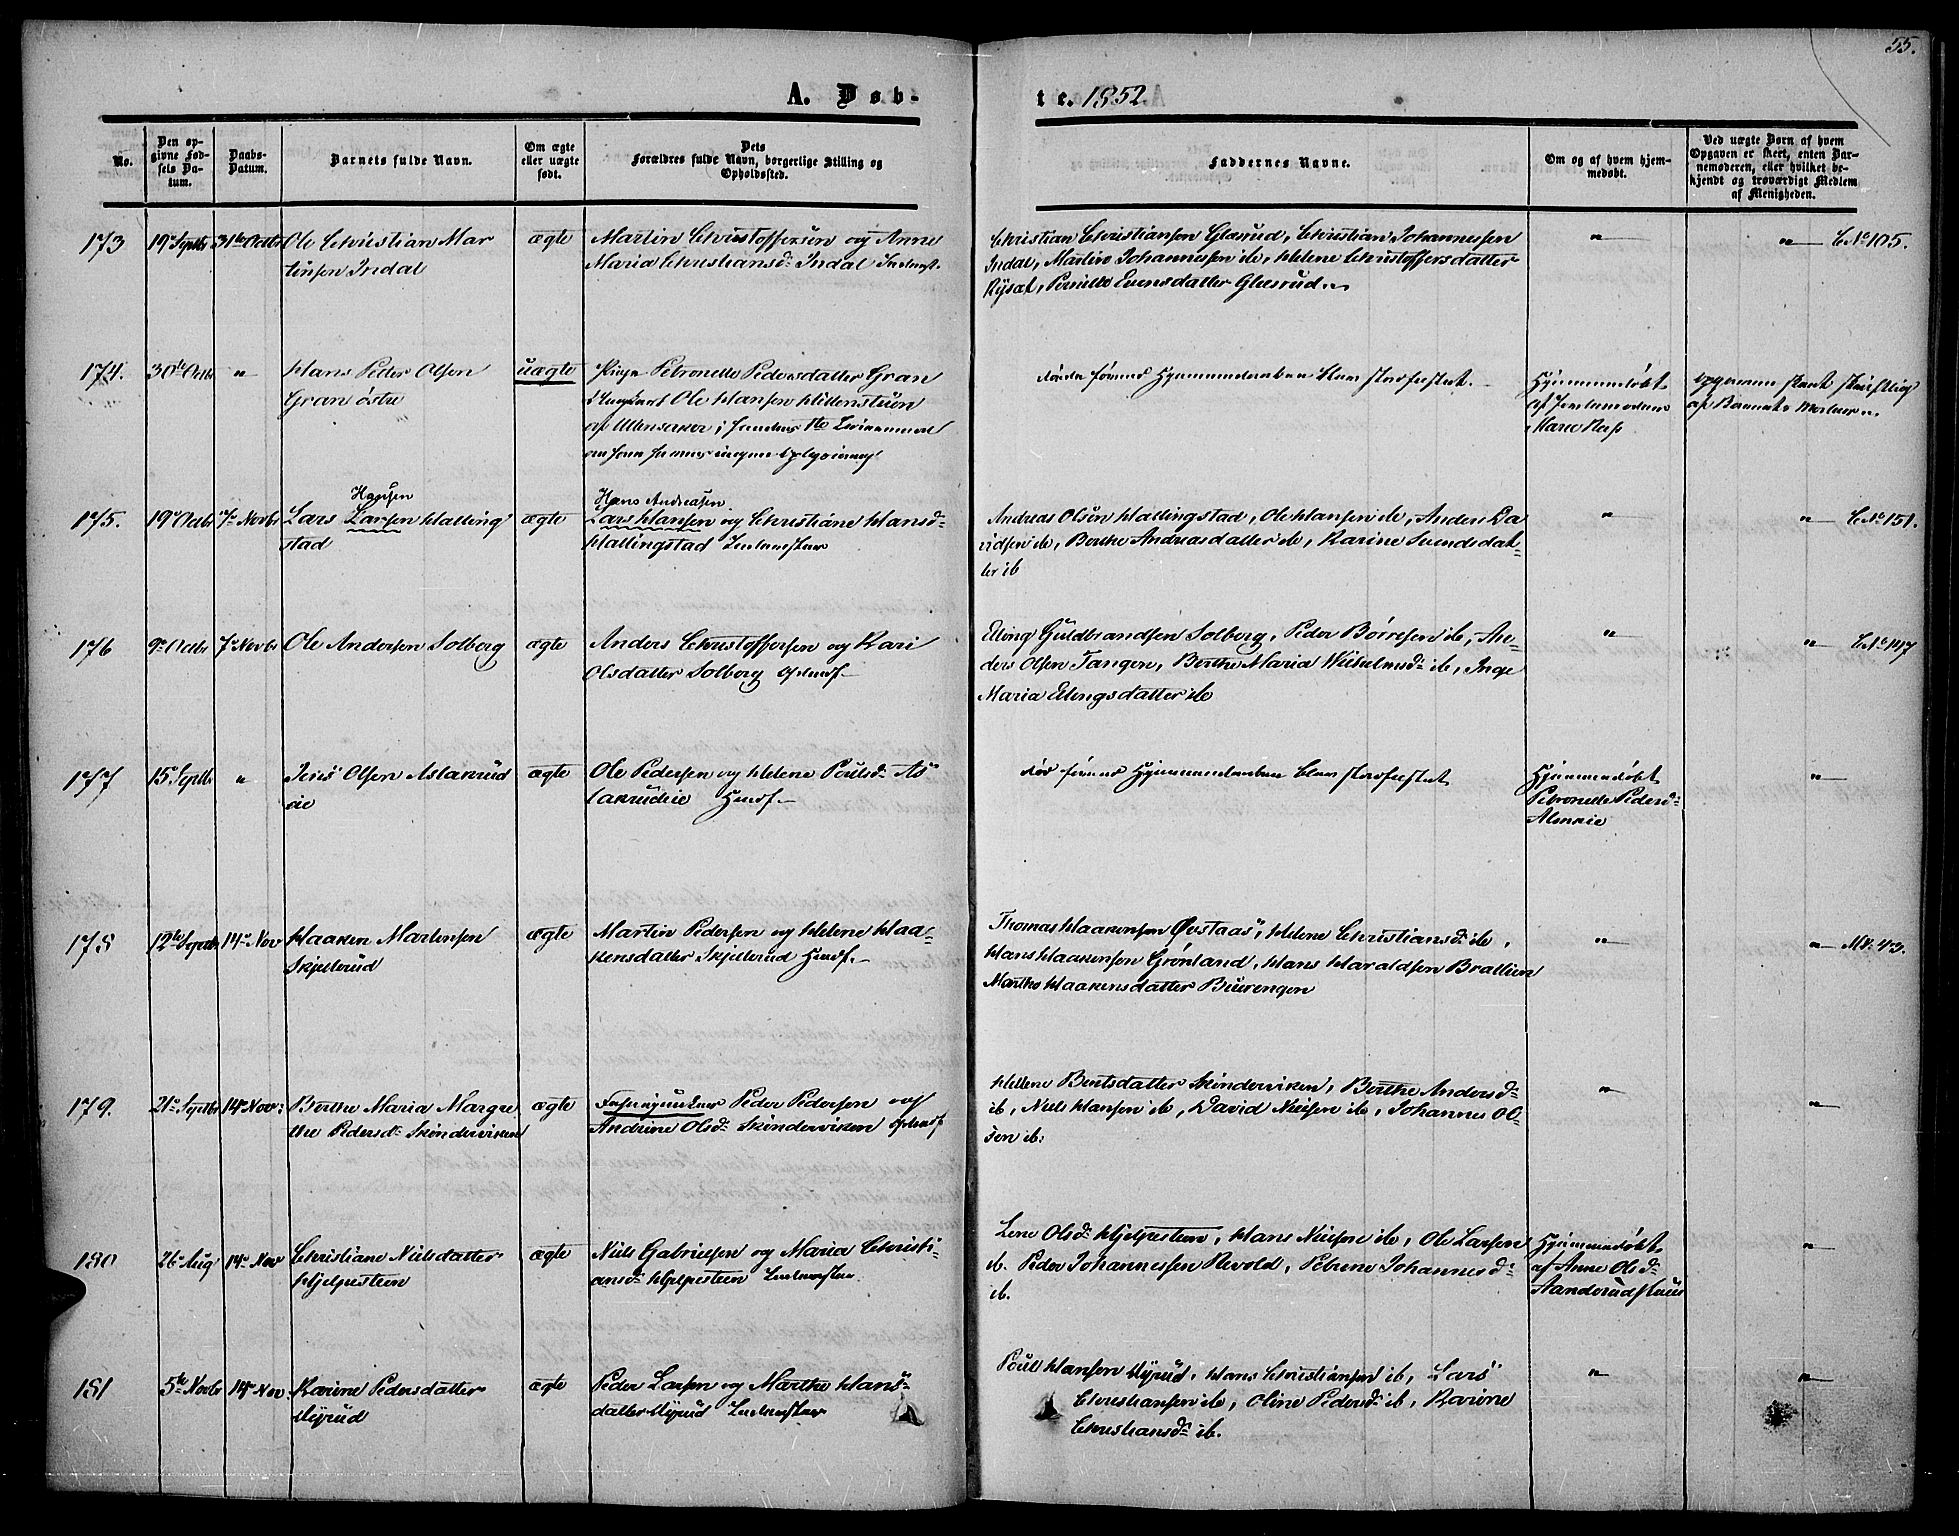 55.
A. Døb-
te. 1852.
No.
Den op-
givne Fød-
sels Da-
tum.
Daabs-
Datum.
Barnets fulde Navn.
Om ægte
eller uægte
født.
Dets
Forældres fulde Navn, borgerlige Stilling og
Opholdssted.
Faddernes Navne.
Om og af hvem hjem-
medøbt.
Ved uægte Børn af hvem
Opgaven er skeet, enten Bar-
nemoderen, eller hvilket be-
kjendt og troværdigt Medlem
af Menigheden.
173 19 Septbr 31te Octbr Ole Christian Mar
tinsen Indal
ægte
Martin Christoffersen og Anne
Maria Christiansd: Indal
Christian Christiansen Glæsrud, Christian Johannesen
Indal, Martin Johannesen ib, Helene Christoffersdatter
Rysæt, Pernille Evensdatter Glæsrud.
" " C No 105.
174. 30te Octbr " Hans Peder Olsen
Gran østre
uægte
Pige Petronelle Pedersdatter Gran
Ungkarl Ole Hansen
af Ullensaker
Døde førend Hjemmedaaben blev stadfæstet.
Hjemmedøbt
af Jordemoderen
skriftlig
af Barnets Moder
175. 19 Octbr 7 Novbr Lars Larsen Halling
Hansen
stad
ægte
Hans Andreasen
Lars Hansen og Christiane Hansd:
Hallingstad
Andreas Olsen Hallingstad, Ole Hansen ib, Anders Da
vidsen ib, Berthe Andreasdatter ib, Karine Svendsdat-
ter ib
" " C No 151.
176 9 Octbr 7 Novbr Ole Andersen Solberg
ægte
Anders Christoffersen og Kari
Olsdatter Solberg
Eling Guldbrandsen Solberg, Peder Børresen ib, An-
ders Olsen Tangen, Berthe Maria ib, Inge
Maria Elingsdatter ib
" " C No 147
177 15 Septbr " Jens Olsen Aslakrud
eie
ægte
Ole Pedersen og Helene Poulsd: As
lakrudeie Husmf.
Død førend Hjemmedaaben blev stadfæstet
Hjemmedøbt
Petronelle Pedersd:
"
178 12te Septbr 14 Nov Haaken Martinsen
Skjellerud
ægte
Martin Pedersen og Helene Haa-
kensdatter Skjellerud Husmf.
Thomas Haakensen Øvstaas, Helene Christiansd: ib,
Hans Haakensen Grønland, Hans Haraldsen Brattlien
Marthe Haakensdatter Buerengen
" " M. 43.
179. 21 Septbr 14 Nov: Berthe Maria Margre
the Pedersd: Skinderviken
ægte
Peder Pedersen og
Andrine Olsd: Skinderviken
Hellene Bentsdatter Skinderviken, Berthe Andersd:
ib, Niels Hansen ib, David Nielsen ib, Johannes Ol-
sen ib.
" "
180 26 Aug 14 Nov Christiane Nielsdatter
Hjelpesteen
ægte
Niels Gabrielsen og Maria Christi-
ansd: Hjelpesteen
Lene Olsd: Hjelpesteen, Hans Nielsen ib, Ole Larsen
ib. Peder Johannessen Revold, Petrine Johannesd:
ib.
Hjemmedøbt
af Anne Olsd:
"
181 5te Novbr 14 Nov Karine Pedersdatter
Myrud
ægte
Peder Larsen og Marthe Hans-
datter Myrud
Poul Hansen Myrud, Hans Christiansen ib, Lars
Christiansen ib, Oline Pedersd: ib, Karine
Christiansd: ib.
" "